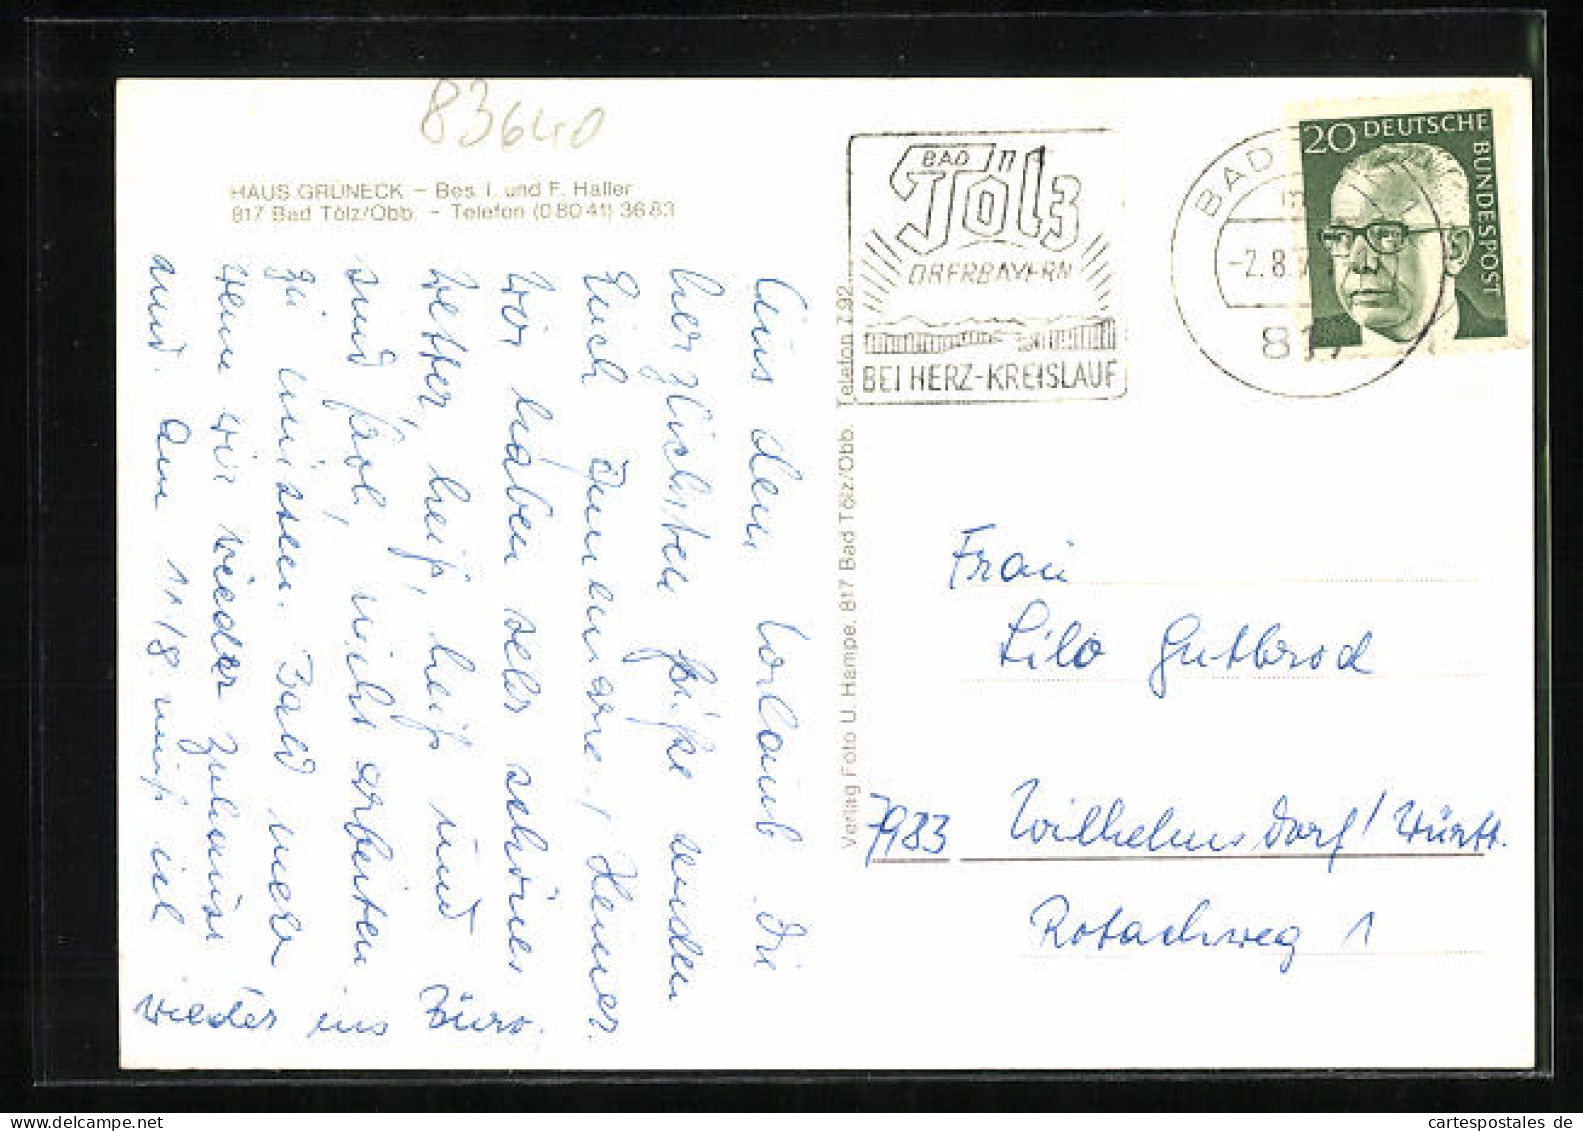 83640
HAUS GRÜNECK – Bes. I. und F. Haller
817 Bad Tölz/Obb. – Telefon (0 80 41) 36 83
Aus dem Urlaub die
herzlichsten Grüße senden
Euch Annemarie / Heiner.
Wir haben sehr schönes
Wetter, heiß, heiß und
sind froh, nicht arbeiten
zu müssen. Bald
wenn wir wieder zuhause
sind. Am 11/8 muß ich
wieder ins Büro.
Verlag Foto U. Hampe, 817 Bad Tölz/Obb. Telefon 7 92
BAD
Tölz
OBERBAYERN
BEI HERZ-KREISLAUF
BAD
-2.8.7
817
20 DEUTSCHE
BUNDESPOST
Frau
Lilo Gutbrod
7983 Wilhelmsdorf/Württ.
Rotachweg 1
cartespostales de